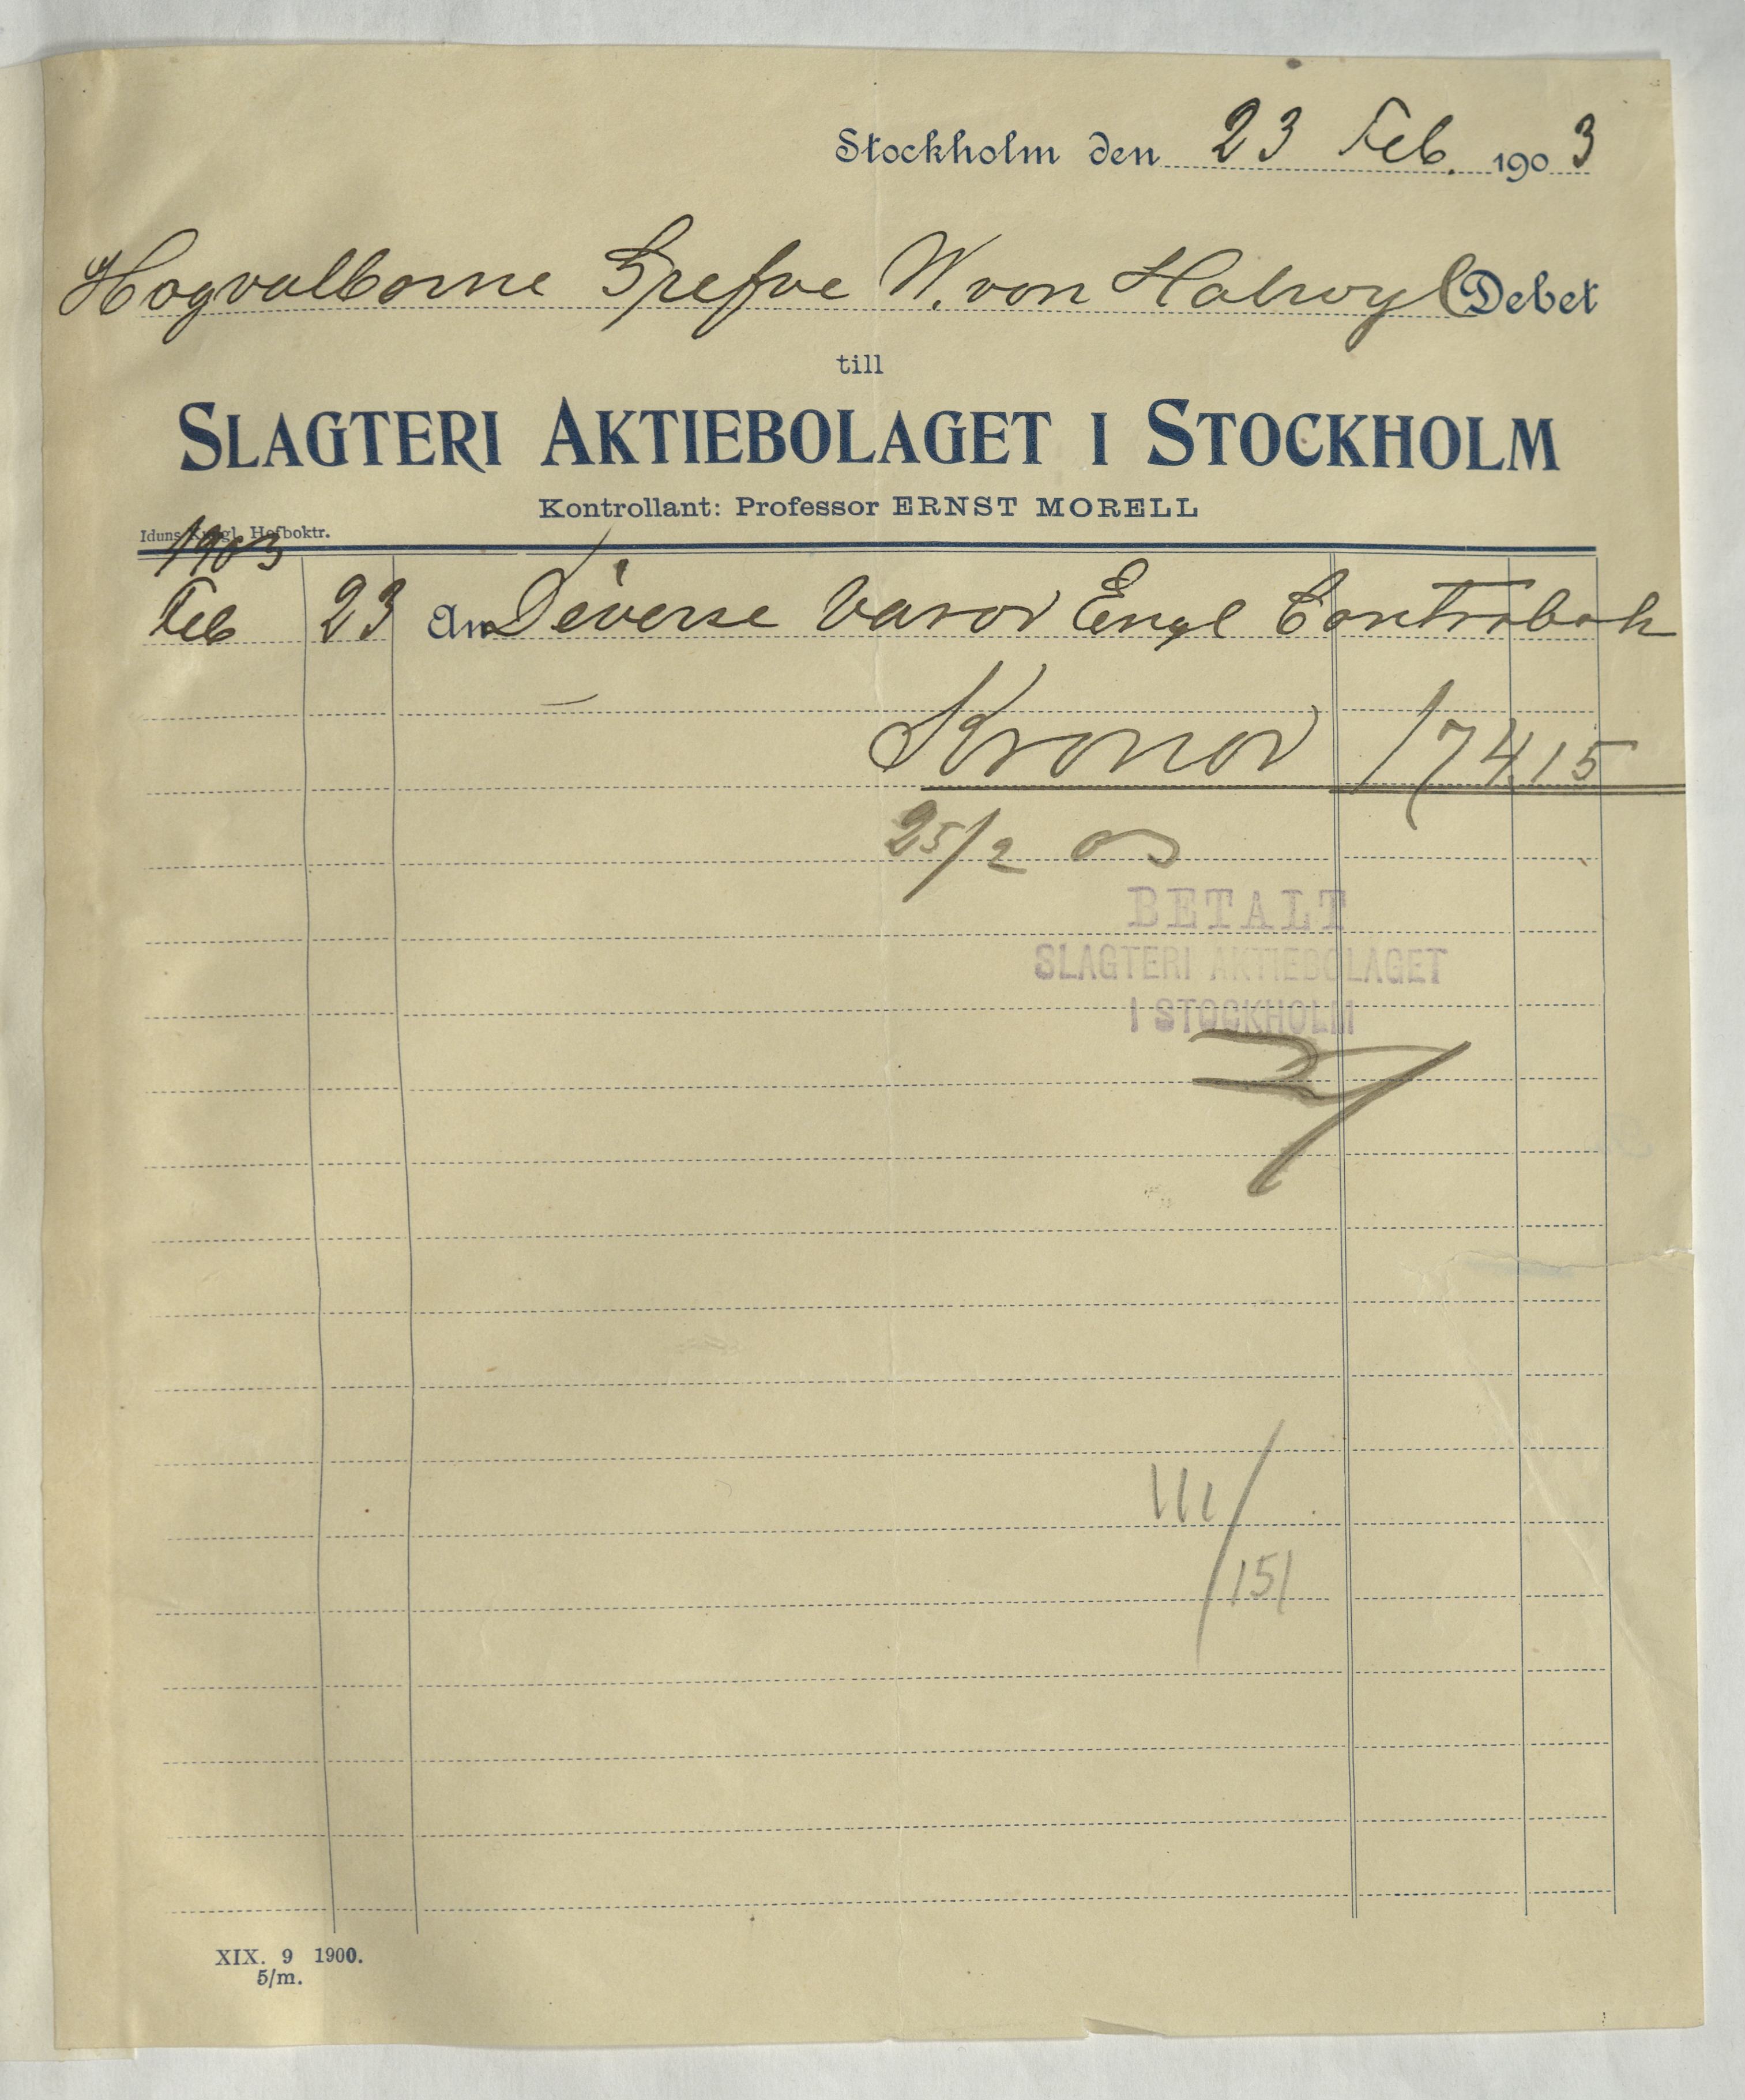 Stockholm den 23 Feb. 1903
Hogvalborne Grefve W. von Halwyl Debet
till
SLAGTERI AKTIEBOLAGET I STOCKHOLM
Kontrollant: Professor ERNST MORELL
Iduns Kungl. Hofboktr.
1903
Feb 23 An Diverse Varor Engl Contrabok
Kronor 174,15
25/2
BETALT
SLAGTERI AKTIEBOLAGET
I STOCKHOLM
III/151
XIX. 9 1900.
5/m.